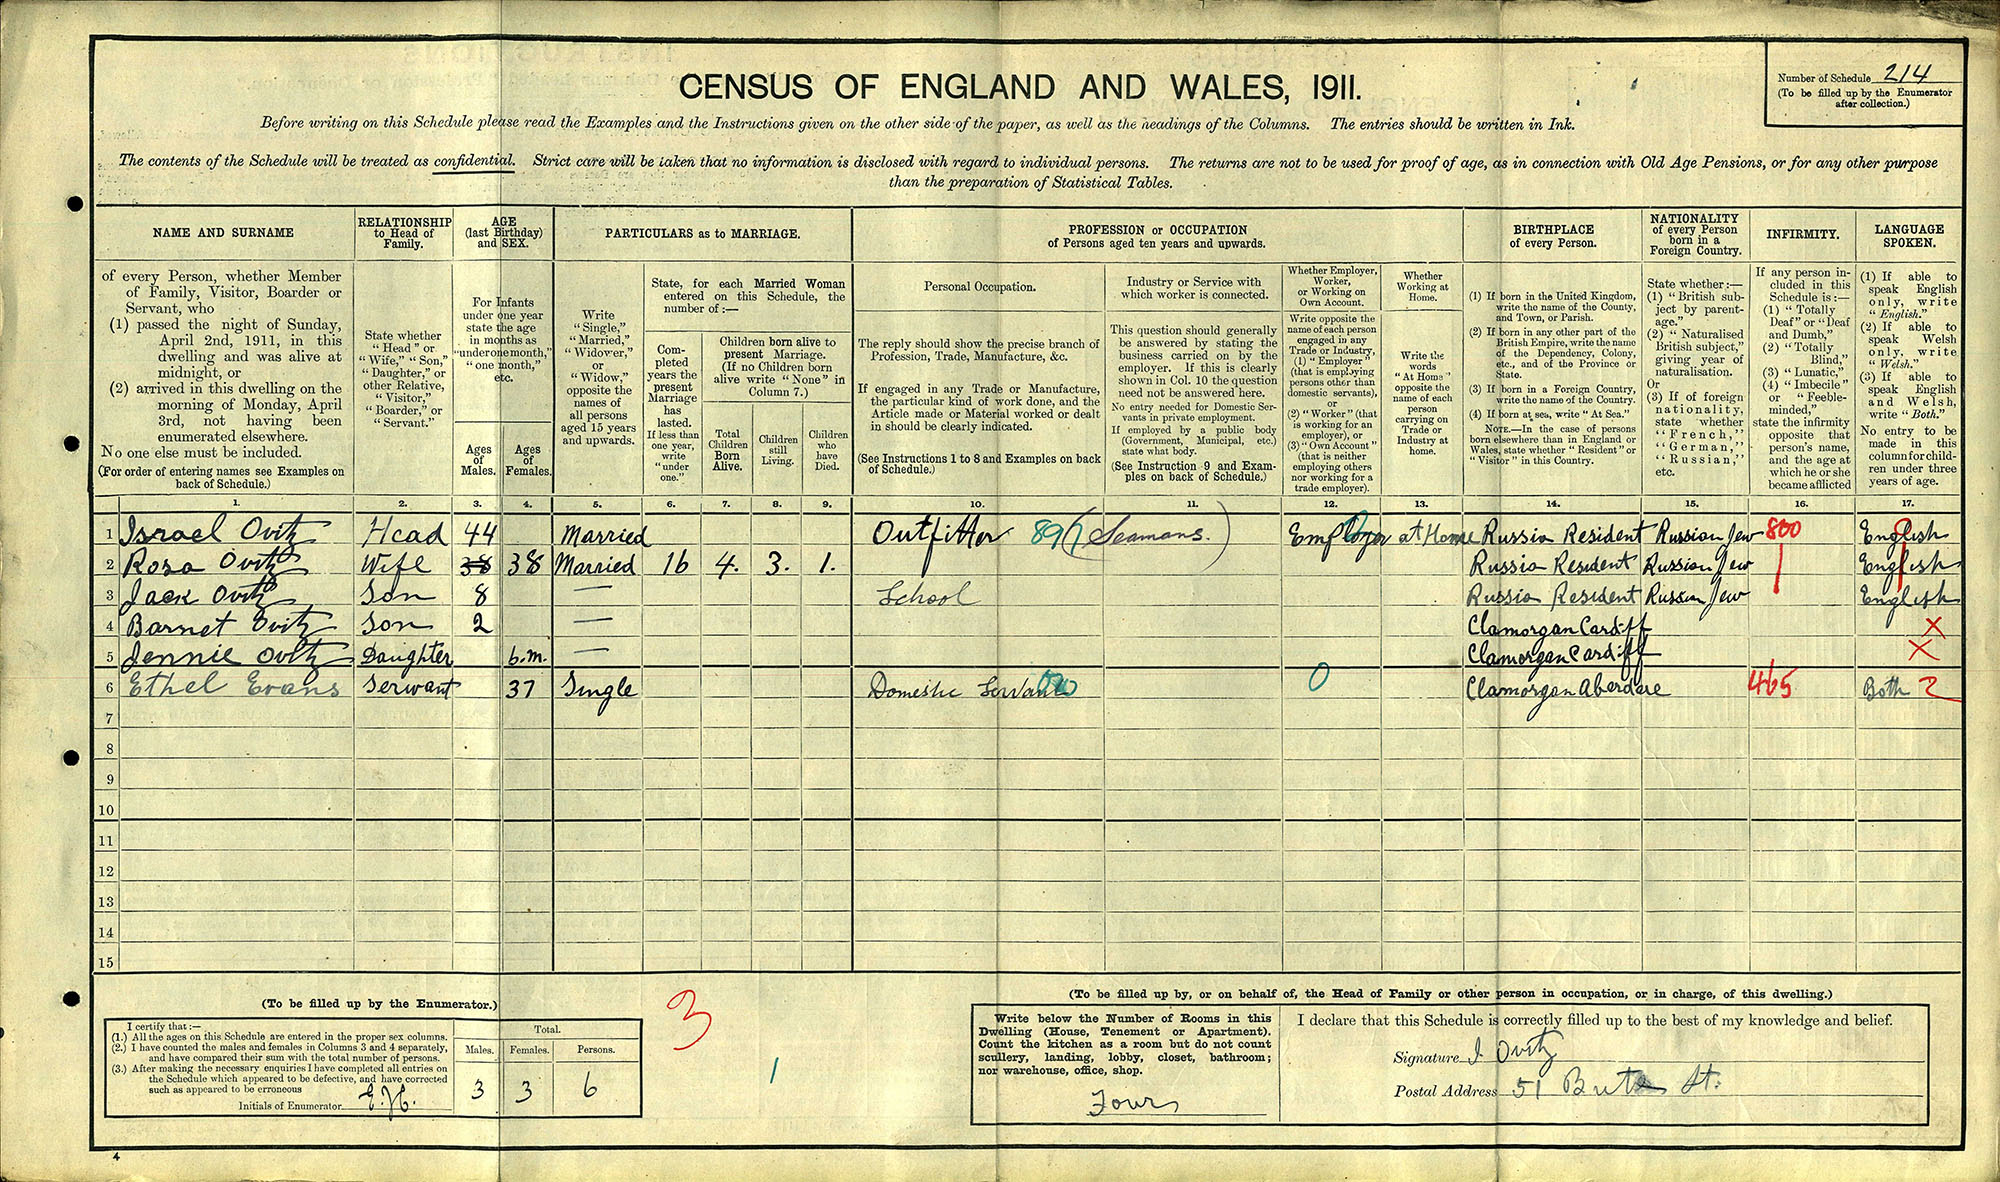 CENSUS OF ENGLAND AND WALES, 1911.
Number of Schedule 214
(To be filled up by the Enumerator
after collection.)
Before writing on this Schedule please read the Examples and the Instructions given on the other side of the paper, as well as the headings of the Columns. The entries should be written in Ink.
The contents of the Schedule will be treated as confidential. Strict care will be taken that no information is disclosed with regard to individual persons. The returns are not to be used for proof of age, as in connection with Old Age Pensions, or for any other purpose
than the preparation of Statistical Tables.
NAME AND SURNAME
of every Person, whether Member
of Family, Visitor, Boarder or
Servant, who
(1) passed the night of Sunday,
April 2nd, 1911, in this
dwelling and was alive at
midnight, or
(2) arrived in this dwelling on the
morning of Monday, April
3rd, not having been
enumerated elsewhere.
No one else must be included.
(For order of entering names see Examples on
back of Schedule.)
RELATIONSHIP
to Head of
Family.
State whether
"Head" or
"Wife," "Son,"
"Daughter," or
other Relative,
"Visitor,"
"Boarder," or
"Servant."
AGE
(last Birthday)
and SEX.
For Infants
under one year
state the age
in months as
"under one month,"
"one month,"
etc.
Ages
of
Males.
Ages
of
Females.
PARTICULARS as to MARRIAGE.
Write
"Single,"
"Married,"
"Widower,"
or
"Widow,"
opposite the
names of
all persons
aged 15 years
and upwards.
State, for each Married Woman
entered on this Schedule, the
number of:—
Com-
pleted
years the
present
Marriage
has
lasted.
If less than
one year,
write
"under
one."
Children born alive to
present Marriage.
(If no Children born
alive write "None" in
Column 7.)
Total
Children
Born
Alive.
Children
still
Living.
Children
who
have
Died.
PROFESSION or OCCUPATION
of Persons aged ten years and upwards.
Personal Occupation.
The reply should show the precise branch of
Profession, Trade, Manufacture, &c.
If engaged in any Trade or Manufacture,
the particular kind of work done, and the
Article made or Material worked or dealt
in should be clearly indicated.
(See Instructions 1 to 8 and Examples on back
of Schedule.)
Industry or Service with
which worker is connected.
This question should generally
be answered by stating the
business carried on by the
employer. If this is clearly
shown in Col. 10 the question
need not be answered here.
No entry needed for Domestic Ser-
vants in private employment.
If employed by a public body
(Government, Municipal, etc.)
state what body.
(See Instruction 9 and Exam-
ples on back of Schedule.)
Whether Employer,
Worker,
or Working on
Own Account.
Write opposite the
name of each person
engaged in any
Trade or Industry,
(1) "Employer"
(that is employing
persons other than
domestic servants),
or
(2) "Worker" (that
is working for an
employer), or
(3) "Own Account"
(that is neither
employing others
nor working for a
trade employer).
Whether
Working at
Home.
Write the
words
"At Home"
opposite the
name of each
person
carrying on
Trade or
Industry at
home.
BIRTHPLACE
of every Person.
(1) If born in the United Kingdom,
write the name of the County,
and Town, or Parish.
(2) If born in any other part of the
British Empire, write the name
of the Dependency, Colony,
etc., and of the Province or
State.
(3) If born in a Foreign Country,
write the name of the Country.
(4) If born at sea, write "At Sea."
NOTE.—In the case of persons
born elsewhere than in England or
Wales, state whether "Resident" or
"Visitor" in this Country.
NATIONALITY
of every Person
born in a
Foreign Country.
State whether:—
(1) "British sub-
ject by parent-
age."
(2) "Naturalised
British subject,"
giving year of
naturalisation.
Or
(3) If of foreign
nationality,
state whether
"French,"
"German,"
"Russian,"
etc.
INFIRMITY.
If any person in-
cluded in this
Schedule is:—
(1) "Totally
Deaf" or "Deaf
and Dumb,"
(2) "Totally
Blind,"
(3) "Lunatic,"
(4) "Imbecile"
or "Feeble-
minded,"
state the infirmity
opposite that
person's name,
and the age at
which he or she
became afflicted
LANGUAGE
SPOKEN.
(1) If able to
speak English
only, write
"English."
(2) If able to
speak Welsh
only, write
"Welsh."
(3) If able to
speak English
and Welsh,
write "Both."
No entry to be
made in this
column for child-
ren under three
years of age.
1. 2. 3. 4. 5. 6. 7. 8. 9. 10. 11. 12. 13. 14. 15. 16. 17.
1 Israel Ovitz Head 44 Married Outfitter (Seamans.) Employer at Home Russia Resident Russian Jew 800 English
2 Rosa Ovitz Wife 38 38 Married 16 4. 3. 1. Russia Resident Russian Jew English
3 Jack Ovitz Son 8 — School Russia Resident Russian Jew English
4 Barnet Ovitz Son 2 — Clamorgan Cardiff X
5 Jennie Ovitz Daughter 6.m. — Clamorgan Cardiff X
6 Ethel Evans Servant 37 Single Domestic Servant 0 Clamorgan Aberdare 465 Both 2
7
8
9
10
11
12
13
14
15
(To be filled up by the Enumerator.)
I certify that:—
(1.) All the ages on this Schedule are entered in the proper sex columns.
(2.) I have counted the males and females in Columns 3 and 4 separately,
and have compared their sum with the total number of persons.
(3.) After making the necessary enquiries I have completed all entries on
the Schedule which appeared to be defective, and have corrected
such as appeared to be erroneous
Initials of Enumerator
Total.
Males. Females. Persons.
3 3 6
3
1
(To be filled up by, or on behalf of, the Head of Family or other person in occupation, or in charge, of this dwelling.)
Write below the Number of Rooms in this
Dwelling (House, Tenement or Apartment).
Count the kitchen as a room but do not count
scullery, landing, lobby, closet, bathroom;
nor warehouse, office, shop.
Four
I declare that this Schedule is correctly filled up to the best of my knowledge and belief.
Signature I. Ovitz
Postal Address 51 Bute St.
4